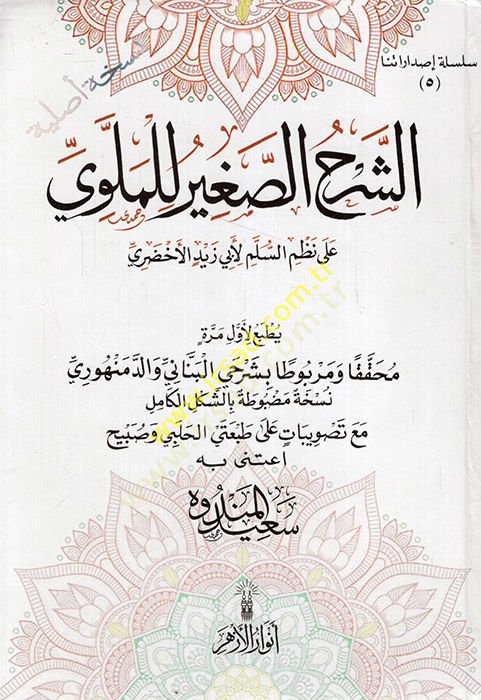 سلسلة إصداراتنا
(٥)
نسخة أصلية
الشَّرحُ الصَّغِيرُ لِلمَلَّوِيِّ
عَلَى نَظْمِ السُّلَّمِ لِأَبِي زَيْدٍ الأَخْضَرِيِّ
يُطْبَعُ لِأَوَّلِ مَرَّةٍ
مُحَقَّقًا وَمَرْبُوطًا بِشَرْحَيِ الْبَنَّانِيِّ وَالدَّمَنْهُورِيِّ
نُسْخَةٌ مَضْبُوطَةٌ بِالشَّكْلِ الكَامِلِ
مَعَ تَصْوِيبَاتٍ عَلَى طَبْعَتَيِ الحَلَبِي وَصُبَيح
اعتنى به
سَعِيد المَنْدُوه
أنوار الأزهر